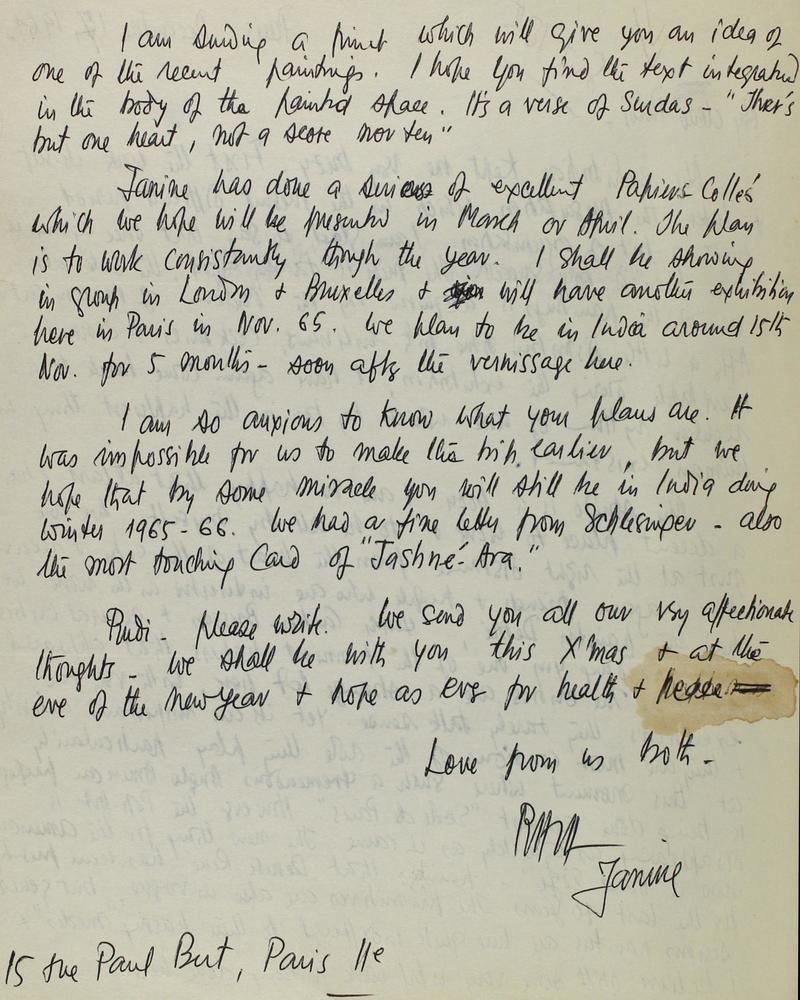 I am sending a print which will give you an idea of
one of the recent paintings. I hope you find the text integrated
in the body of the painted space. It's a verse of Surdas - "Ther's
but one heart, not a score nor ten"
Janine has done a series of excellent Papiers Collés
which we hope will be presented in March or April. The plan
is to work consistantly though the year. I shall be showing
in group in London & Bruxelles & will have another exhibition
here in Paris in Nov. 65. We plan to be in India around 15th
Nov. for 5 months - soon after the vernissage here.
I am so anxious to know what your plans are. It
was impossible for us to make the trip earlier, but we
hope that by some miracle you will still be in India during
Winter 1965-66. We had a fine letter from Schlesinger - also
the most touching Card of "Jashné-Ara."
Rudi - please write. We send you all our very affectionate
thoughts - We shall be with you this X'mas & at the
eve of the New Year & hope as ever for health & peace
Love from us both -
Janine
15 rue Paul Bert, Paris 11e